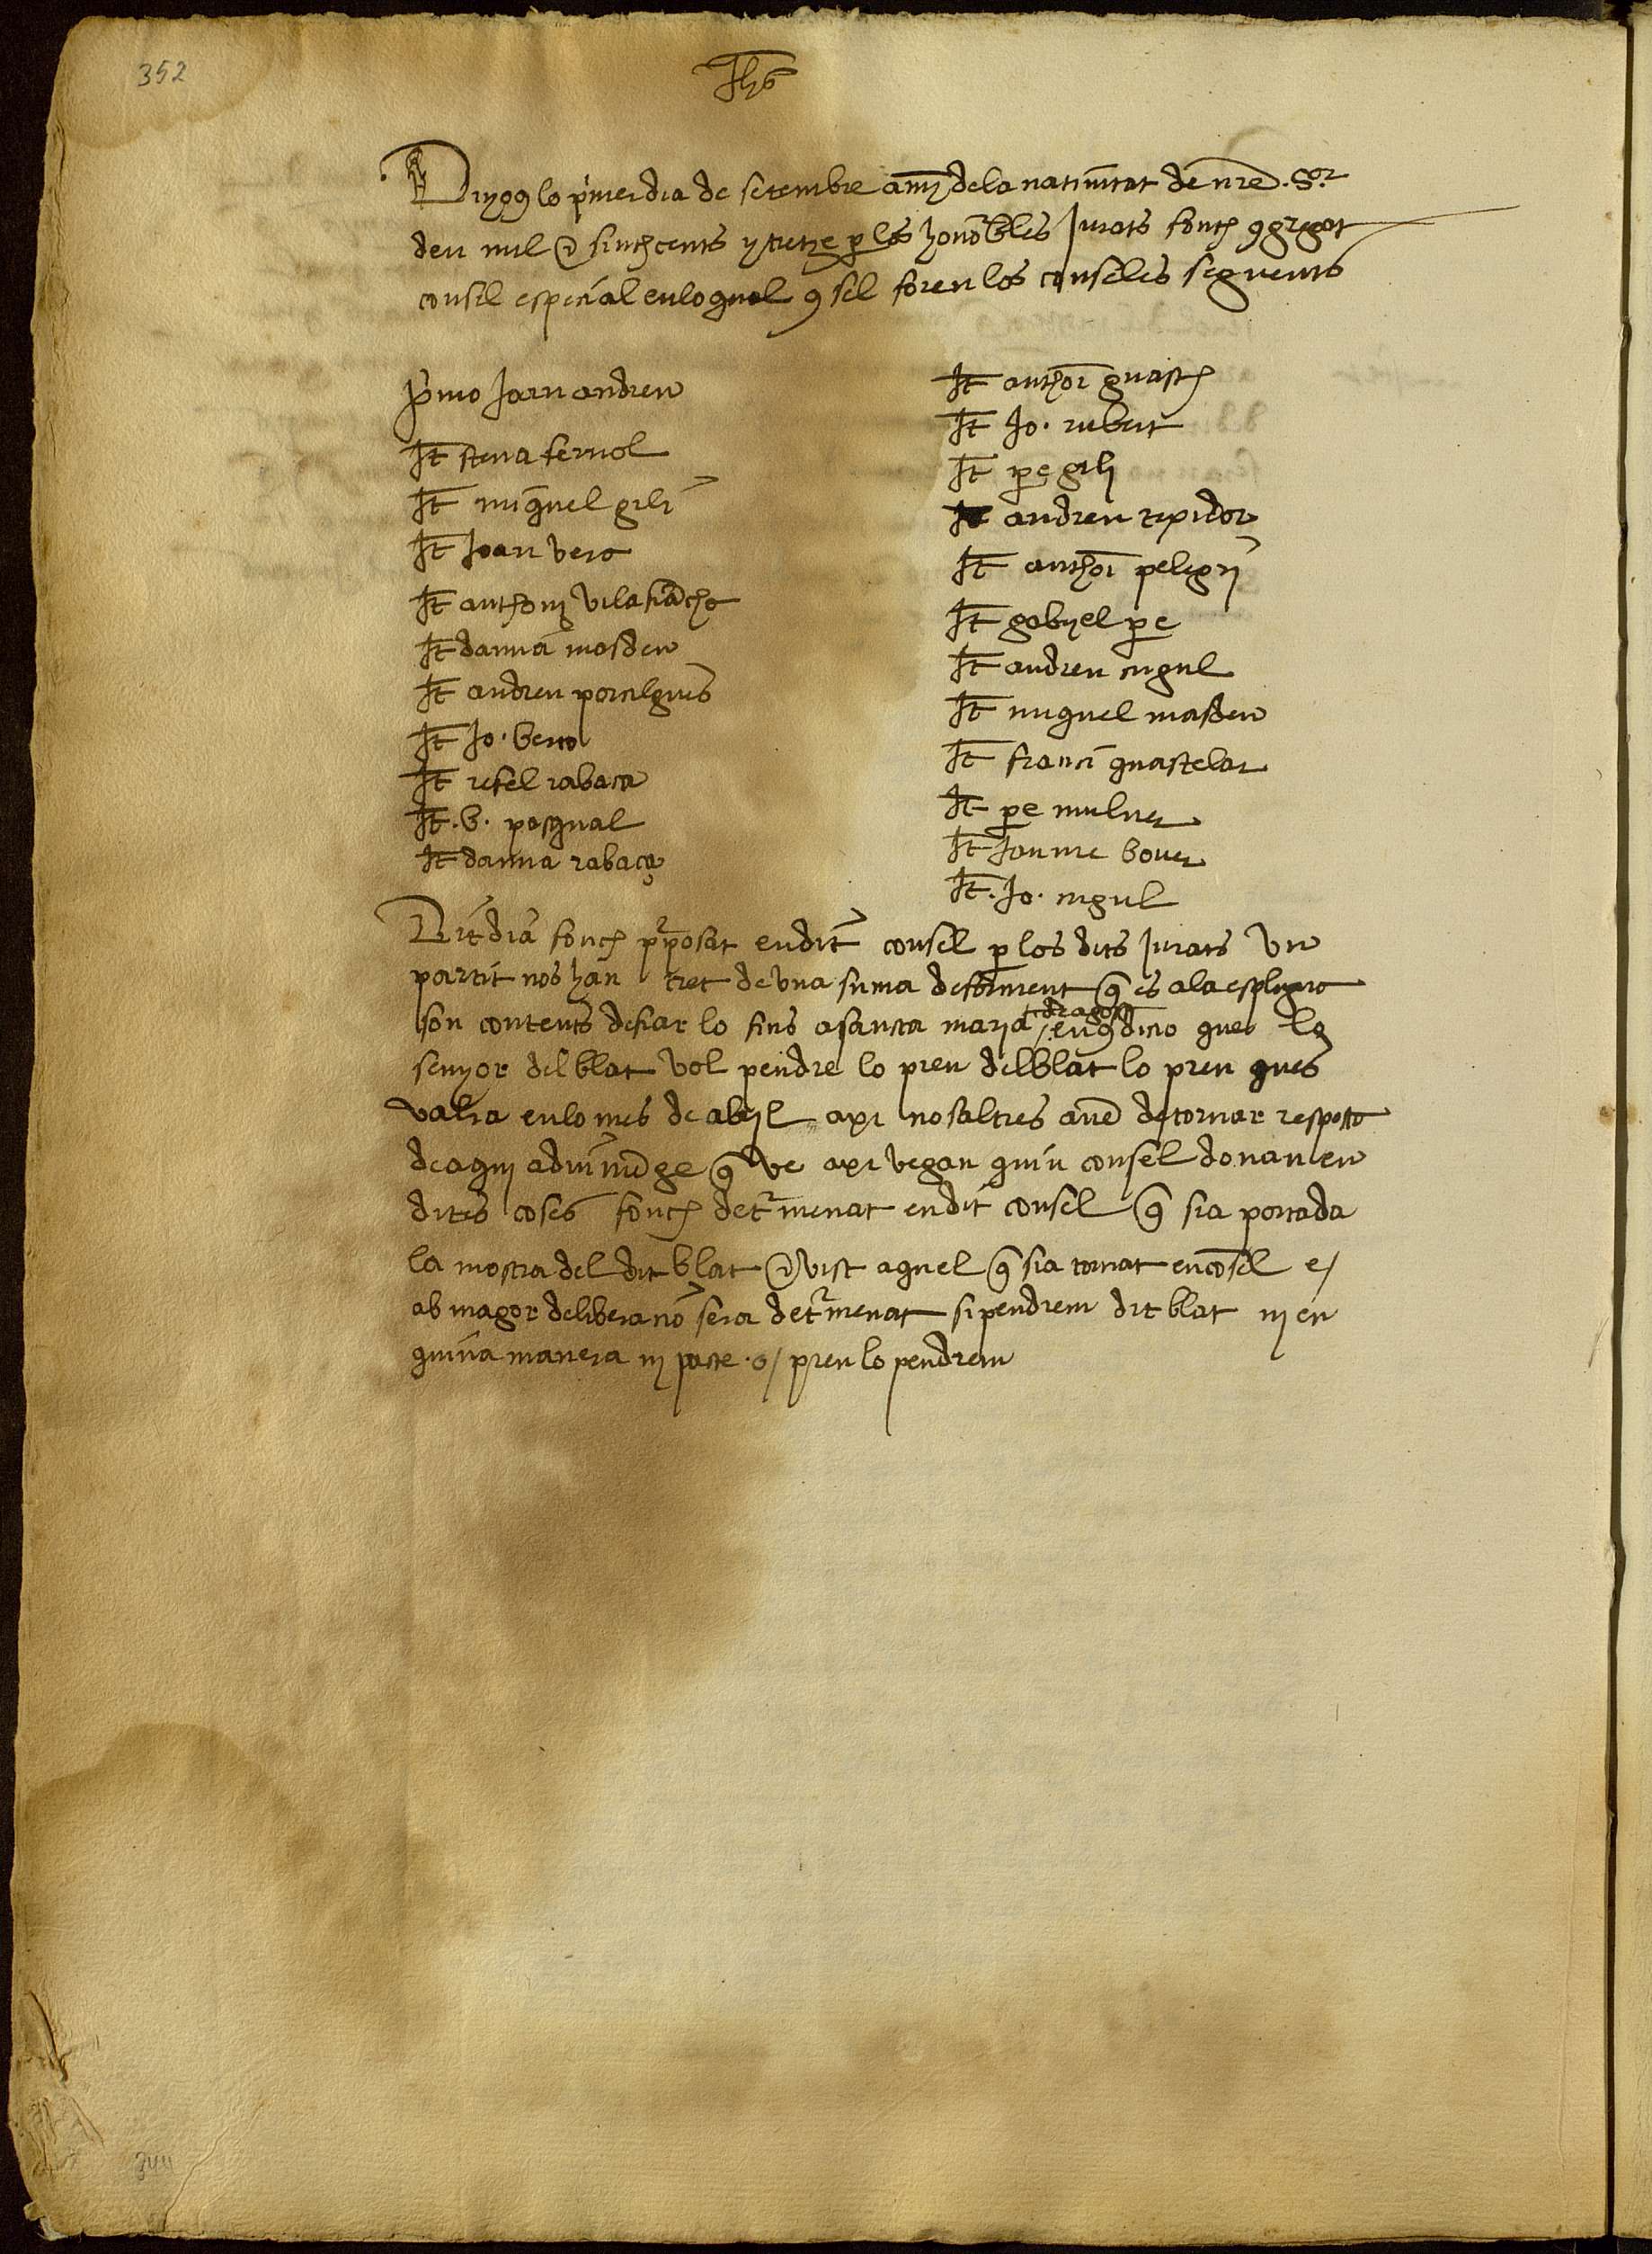 352
Jhs
Dijous lo primer dia de setembre any de la nativitat de nre Sor
deu mil e sinch cents y tretze per los honorbles jurats fonch congregat
consel especial en lo qual consel foren los conseles seguents
primo Joan andreu
It steva feruol
It miquel gili
It Joan vero
It anthoni vilafrancha
It damia masdeu
It andreu porculgues
It Jo. berto
It refel rabaca
It .b. pasqual
It damia rabaça
It anthoi guasch
It Jo. rubert
It pere gili
It andreu texidor
It anthoi peligri
It gabriel pere
It andreu cugul
It miquel masdeu
It franci guastelar
It pere mulner
It Jaume bover
It. Jo. cugul
Dit dia fonch proposat en dit consel per los dits jurats un
partit nos han tret de una suma de forment que es a la espluga
son contents de fiar lo fins a sancta maria dragost en condicio que lo
senyor del blat vol pendre lo preu del blat lo preu ques
valia en lo mes de abril axi nosaltres avem de tornar resposta
de aqui a diumenge que ve axi vegan quin consel donau en
dites coses fonch determenat en dit consel que sia portada
la mostra del dit blat e vist aquel que sia tornat en consel e/
ab magor deliberacio sera determenat si pendrem dit blat ni en
quina manera ni pacte .o/ preu lo pendrem